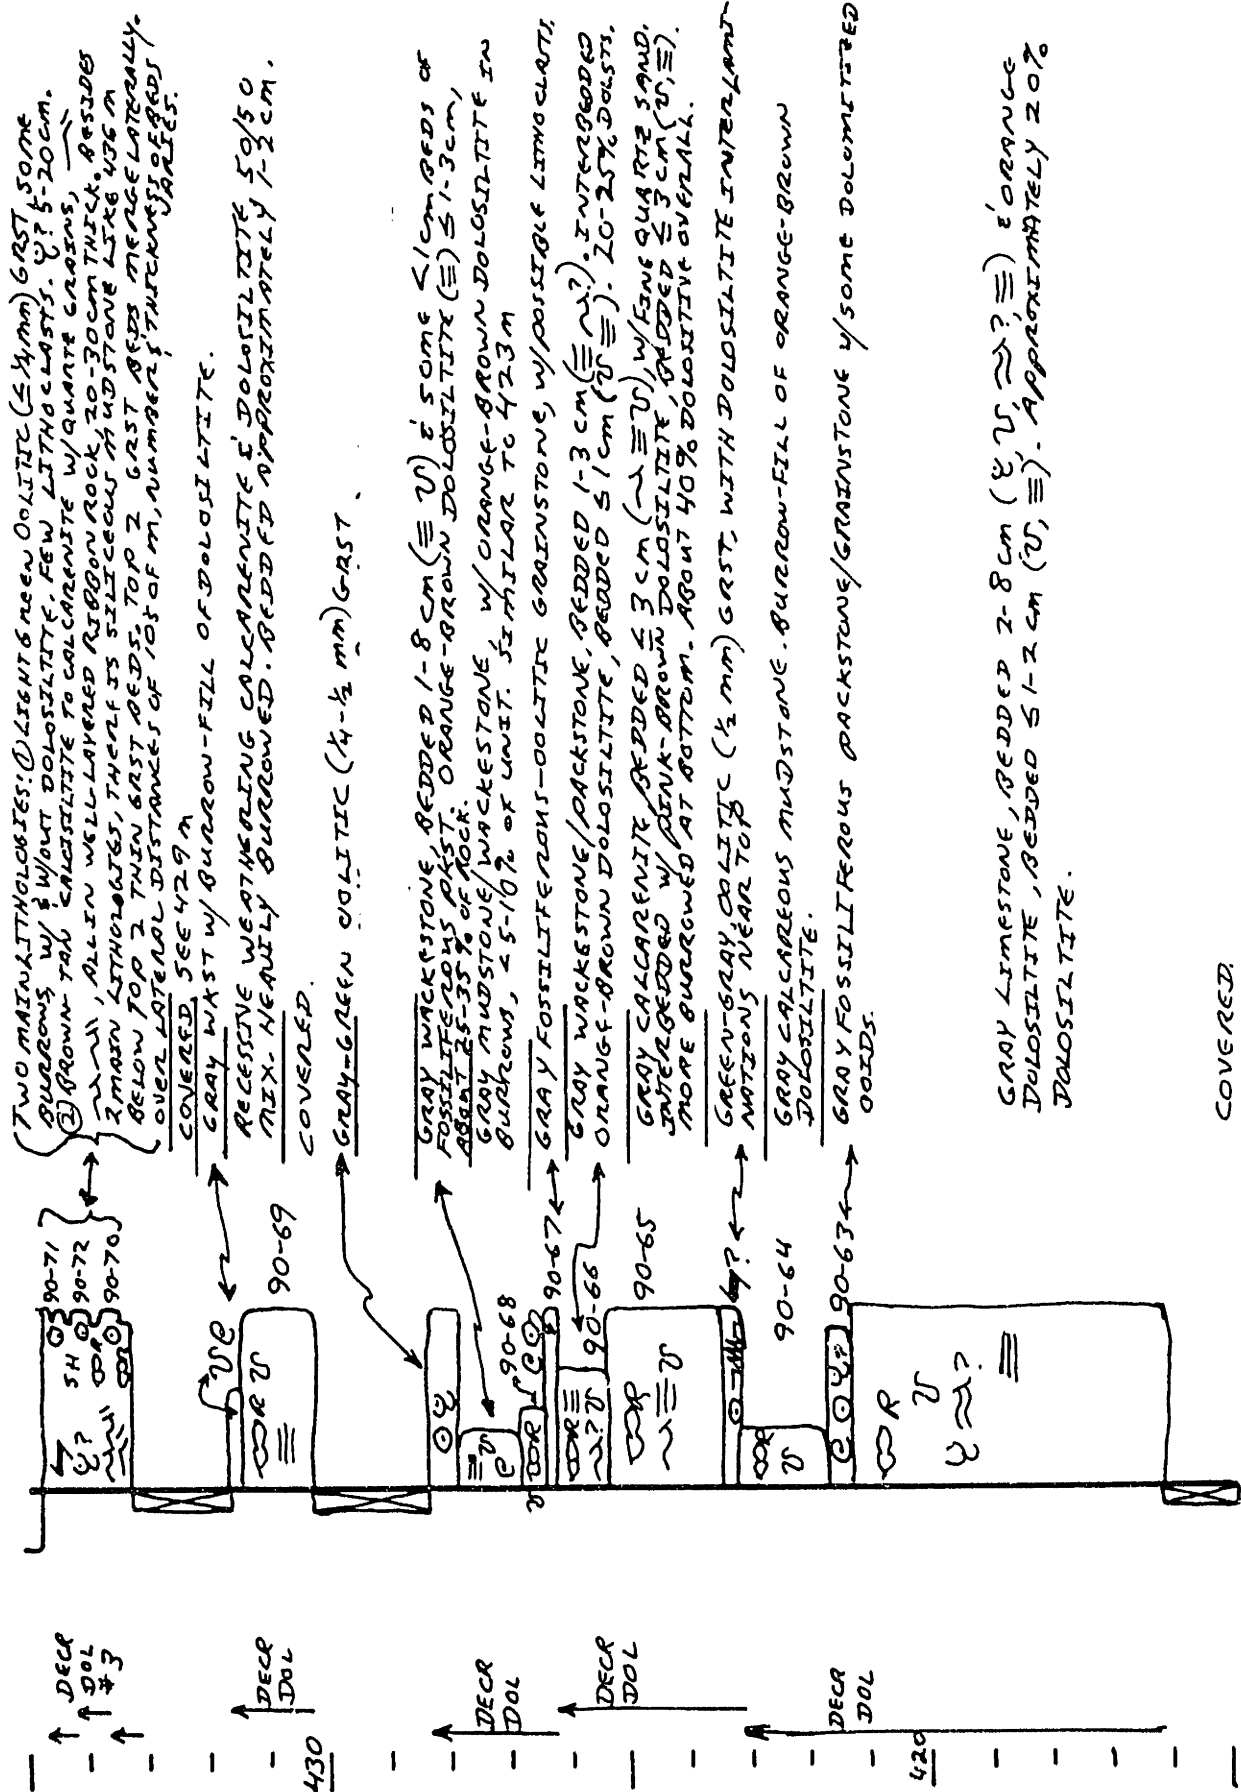 TWO MAIN LITHOLOGIES: ① LIGHT GREEN OOLITIC (≤ ¼ MM) GRST, SOME
BURROWS, W/ & W/OUT DOLOSILTITE, FEW LITHOCLASTS. ? 5-20 CM.
② BROWN-TAN CALCISILTITE TO CALCARENITE W/ QUARTZ GRAINS,
, ALL IN WELL-LAYERED RIBBON ROCK, 20-30 CM THICK. BESIDES
2 MAIN LITHOLOGIES, THERE IS SILICEOUS MUDSTONE LIKE 436 M
BELOW TOP 2 THIN GRST BEDS. TOP 2 GRST BEDS MERGE LATERALLY.
OVER LATERAL DISTANCES OF 10S OF M, NUMBER & THICKNESS OF BEDS
VARIES.
COVERED. SEE 429 M
GRAY WKST W/ BURROW-FILL OF DOLOSILTITE.
RECESSIVE WEATHERING CALCARENITE & DOLOSILTITE 50/50
MIX. HEAVILY BURROWED. BEDDED APPROXIMATELY 1-2 CM.
COVERED.
GRAY-GREEN OOLITIC (¼-½ MM) GRST.
GRAY WACKESTONE, BEDDED 1-8 CM (≡ V) & SOME <1 CM BEDS OF
FOSSILIFEROUS PKST. ORANGE-BROWN DOLOSILTITE (≡) ≤ 1-3 CM,
ABOUT 25-35% OF ROCK.
GRAY MUDSTONE/WACKESTONE, W/ ORANGE-BROWN DOLOSILTITE IN
BURROWS, <5-10% OF UNIT. SIMILAR TO 423 M
GRAY FOSSILIFEROUS-OOLITIC GRAINSTONE, W/ POSSIBLE LITHOCLASTS.
GRAY WACKESTONE/PACKSTONE, BEDDED 1-3 CM (≡ ~?). INTERBEDDED
ORANGE-BROWN DOLOSILTITE, BEDDED ≤ 1 CM (V ≡). 20-25% DOLSTS.
GRAY CALCARENITE, BEDDED ≤ 3 CM (~ ≡ V), W/ FINE QUARTZ SAND.
INTERBEDDED W/ PINK-BROWN DOLOSILTITE, BEDDED ≤ 3 CM (V, ≡).
MORE BURROWED AT BOTTOM. ABOUT 40% DOLOSITIVE OVERALL.
GREEN-GRAY, OOLITIC (½ MM) GRST, WITH DOLOSILTITE INTERLAMI-
NATIONS NEAR TOP
GRAY CALCAREOUS MUDSTONE. BURROW-FILL OF ORANGE-BROWN
DOLOSILTITE.
GRAY FOSSILIFEROUS PACKSTONE/GRAINSTONE W/ SOME DOLOMITIZED
OOIDS.
GRAY LIMESTONE, BEDDED 2-8 CM (V, ~?, ≡) & ORANGE
DOLOSILTITE, BEDDED ≤ 1-2 CM (V, ≡). APPROXIMATELY 20%
DOLOSILTITE.
COVERED.
90-71
SH
90-72
R
90-70
R
?
90-69
R
90-68
R
90-67
90-66
R
?
90-65
R
?
90-64
R
90-63
?
R
?
DECR
DOL
#3
DECR
DOL
DECR
DOL
DECR
DOL
DECR
DOL
430
420